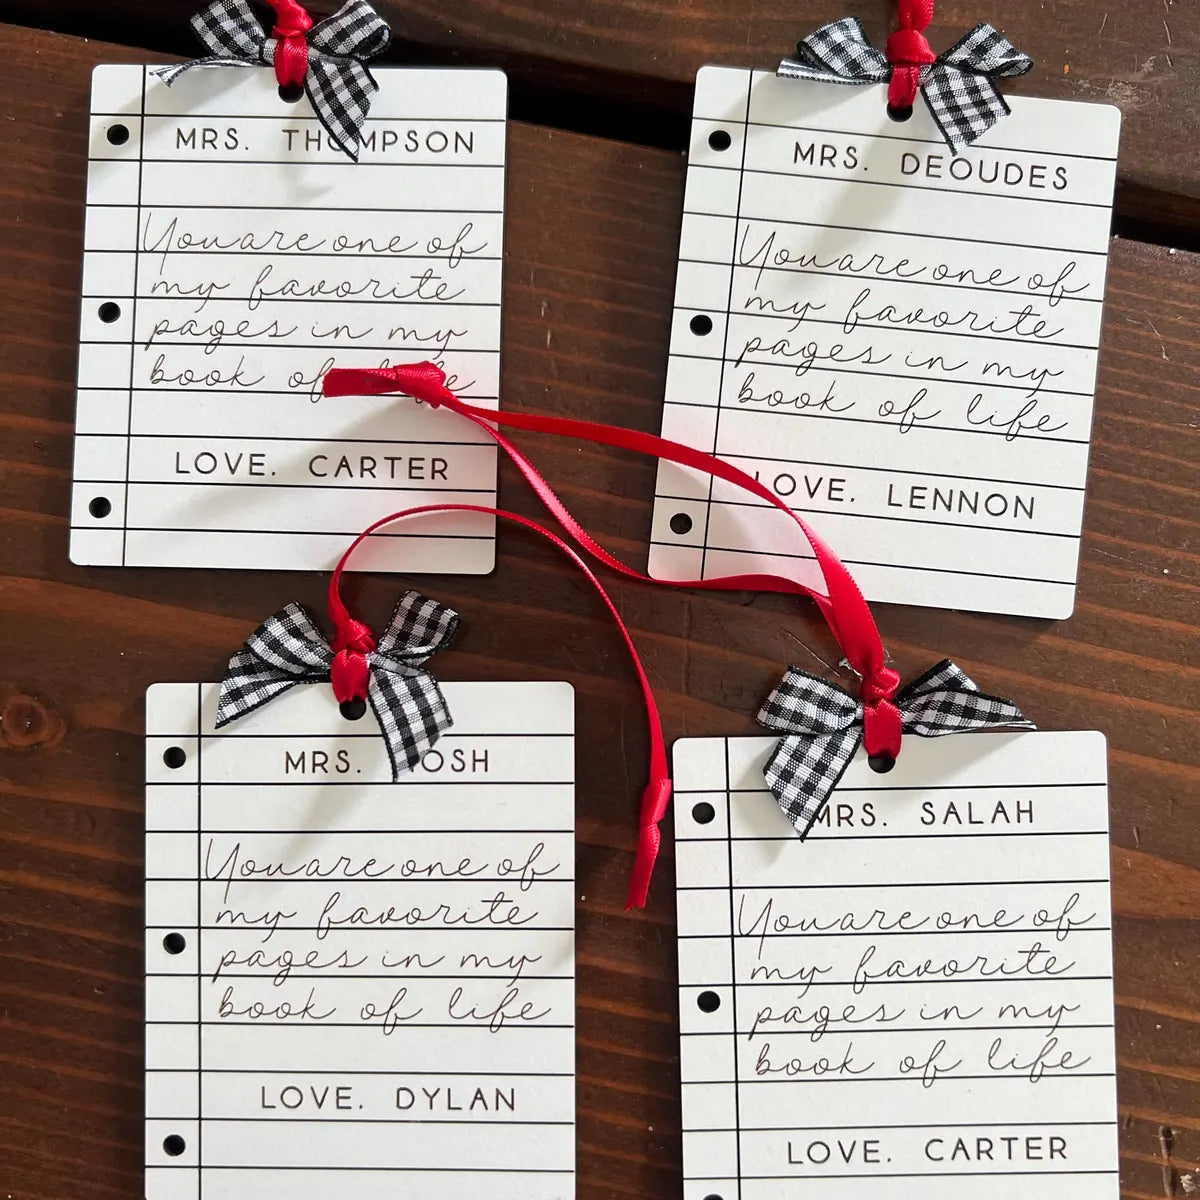 MRS. THOMPSON
You are one of
my favorite
pages in my
book of life
LOVE. CARTER
MRS. DEOUDES
You are one of
my favorite
pages in my
book of life
LOVE. LENNON
MRS.
You are one of
my favorite
pages in my
book of life
LOVE. DYLAN
MRS. SALAH
You are one of
my favorite
pages in my
book of life
LOVE. CARTER